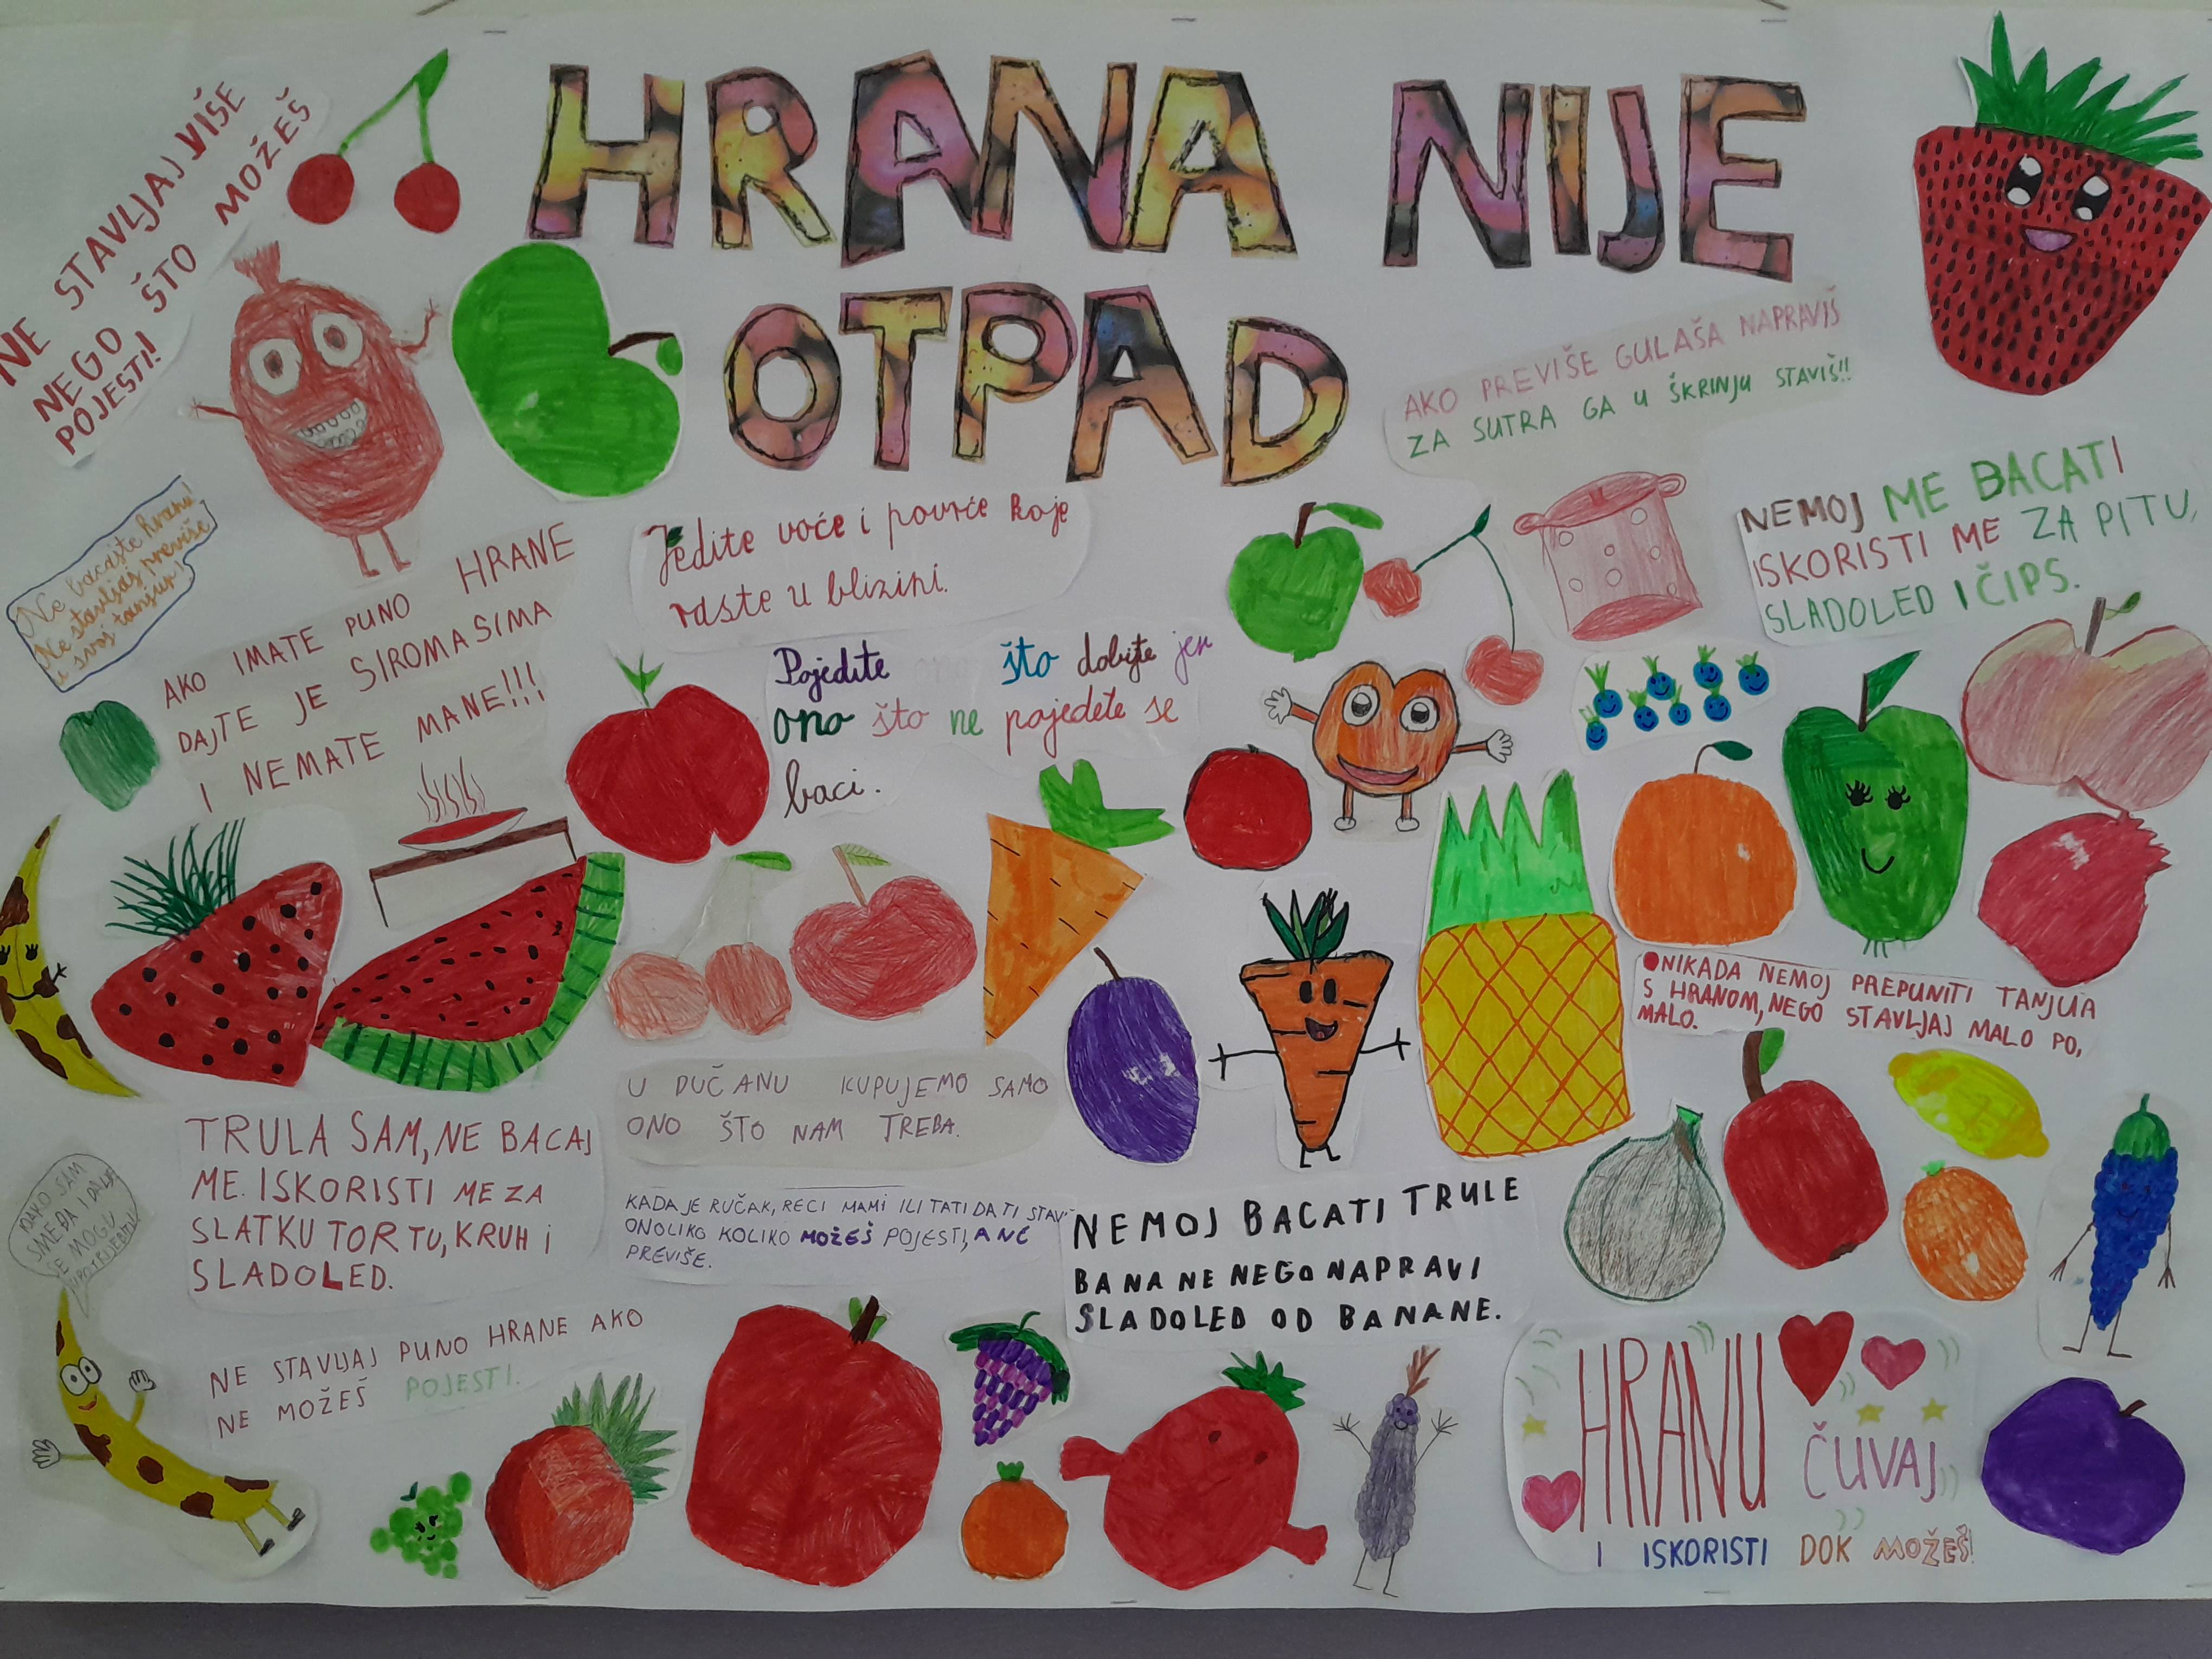 HRANA NIJE
OTPAD
NE STAVLJAJ VIŠE
NEGO ŠTO MOŽEŠ
POJESTI!
AKO PREVIŠE GULAŠA NAPRAVIŠ
ZA SUTRA GA U ŠKRINJU STAVIŠ!!
NEMOJ ME BACATI
ISKORISTI ME ZA PITU,
SLADOLED I ČIPS.
Ne bacajte hranu!
Ne stavljaj previše
u svoj tanjur!
AKO IMATE PUNO HRANE
DAJTE JE SIROMASIMA
I NEMATE MANE!!!
Jedite voće i povrće koje
raste u blizini.
Pojedite što dobijte jer
ono što ne pojedete se
baci.
NIKADA NEMOJ PREPUNITI TANJUR
S HRANOM, NEGO STAVLJAJ MALO PO,
MALO.
U DUČANU KUPUJEMO SAMO
ONO ŠTO NAM TREBA.
TRULA SAM, NE BACAJ
ME. ISKORISTI ME ZA
SLATKU TORTU, KRUH I
SLADOLED.
IAKO SAM
SMEĐA I DALJE
SE MOGU
UPOTRIJEBITI
KADA JE RUČAK, RECI MAMI ILI TATI DA TI STAVI
ONOLIKO KOLIKO MOŽEŠ POJESTI, A NE
PREVIŠE.
NEMOJ BACATI TRULE
BANANE NEGO NAPRAVI
SLADOLED OD BANANE.
NE STAVLJAJ PUNO HRANE AKO
NE MOŽEŠ POJESTI.
HRANU
ČUVAJ
I ISKORISTI DOK MOŽEŠ!